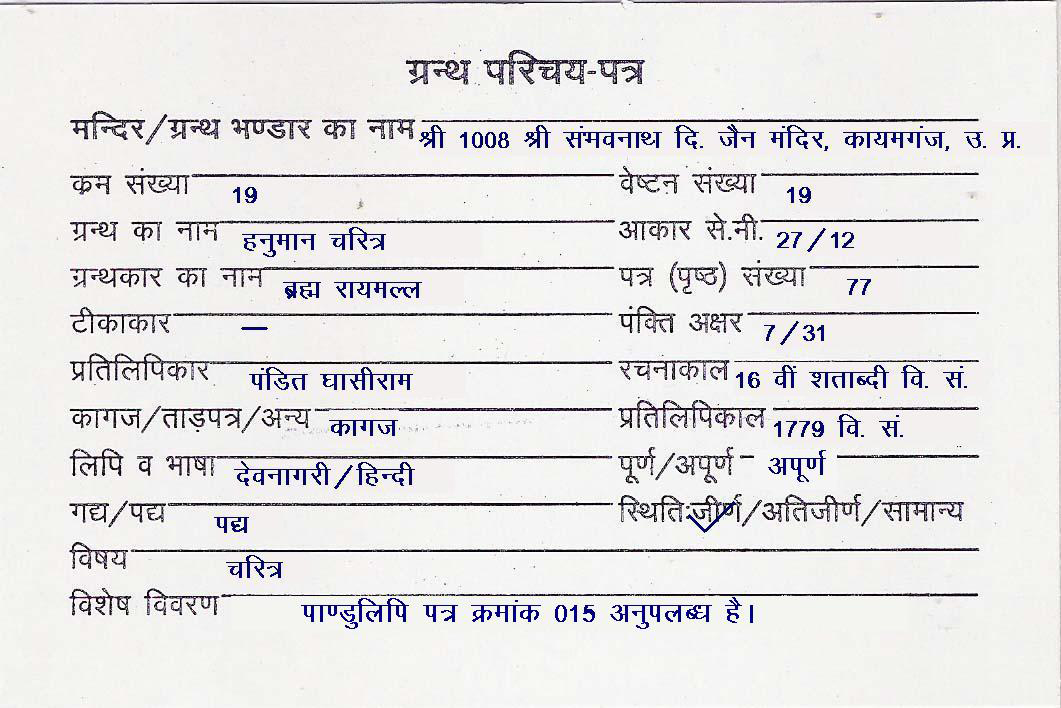 ग्रन्थ परिचय-पत्र
मन्दिर/ग्रन्थ भण्डार का नाम श्री 1008 श्री संभवनाथ दि. जैन मंदिर, कायमगंज, उ. प्र.
क्रम संख्या 19 वेष्टन संख्या 19
ग्रन्थ का नाम हनुमान चरित्र आकार से.मी. 27/12
ग्रन्थकार का नाम ब्रह्म रायमल्ल पत्र (पृष्ठ) संख्या 77
टीकाकार — पंक्ति अक्षर 7/31
प्रतिलिपिकार पंडित घासीराम रचनाकाल 16 वीं शताब्दी वि. सं.
कागज/ताड़पत्र/अन्य कागज प्रतिलिपिकाल 1779 वि. सं.
लिपि व भाषा देवनागरी/हिन्दी पूर्ण/अपूर्ण अपूर्ण
गद्य/पद्य पद्य स्थितिः जीर्ण/अतिजीर्ण/सामान्य
विषय चरित्र
विशेष विवरण पाण्डुलिपि पत्र क्रमांक 015 अनुपलब्ध है।